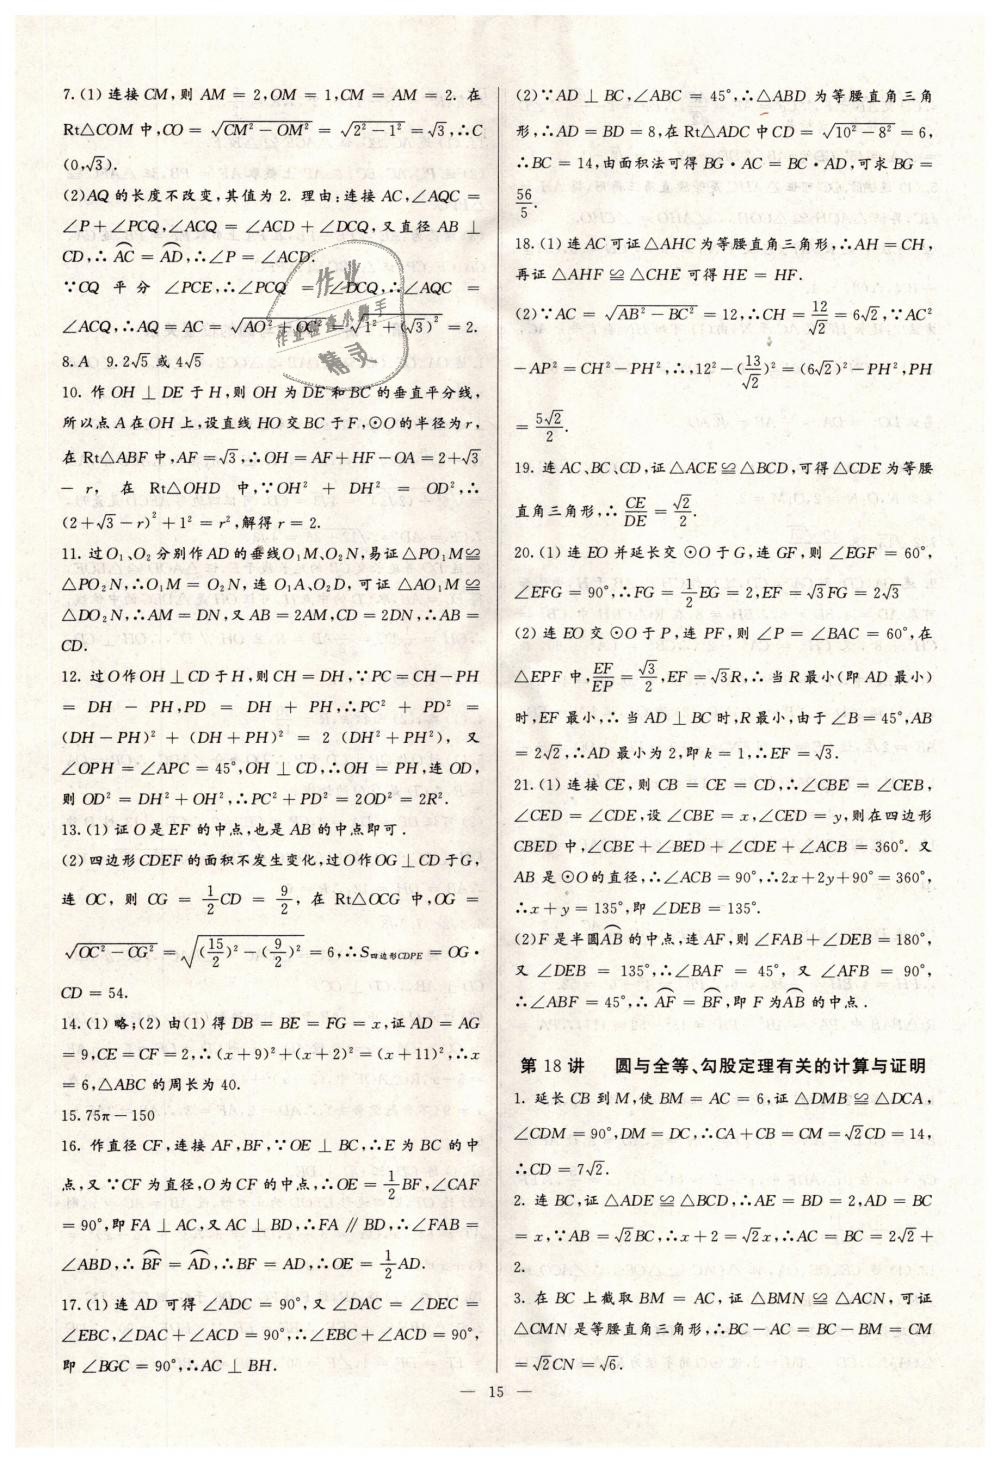 7.(1)连接CM,则 AM = 2,OM = 1,CM = AM = 2. 在
Rt△COM 中,CO = √(CM²－OM²) = √(2²－1²) = √3,∴C
(0,√3).
(2)AQ 的长度不改变,其值为 2. 理由:连接 AC,∠AQC =
∠P＋∠PCQ,∠ACQ = ∠ACD＋∠DCQ,又直径 AB ⊥
CD,∴ A͡C = A͡D,∴∠P = ∠ACD.
∵CQ 平分 ∠PCE,∴∠PCQ = ∠DCQ,∴∠AQC =
∠ACQ,∴AQ = AC = √(AO²＋OC²) = √(1²＋(√3)²) = 2.
8.A 9.2√5 或 4√5
10. 作 OH ⊥ DE 于 H,则 OH 为 DE 和 BC 的垂直平分线,
所以点 A 在 OH 上,设直线 HO 交 BC 于 F,⊙O 的半径为 r,
在 Rt△ABF 中,AF = √3,∴OH = AF＋HF－OA = 2＋√3
－ r, 在 Rt△OHD 中,∵OH² ＋ DH² = OD²,∴
(2＋√3－r)²＋1² = r²,解得 r = 2.
11. 过 O₁、O₂ 分别作 AD 的垂线 O₁M、O₂N,易证△PO₁M≌
△PO₂N,∴O₁M = O₂N,连 O₁A、O₂D,可证 △AO₁M ≌
△DO₂N,∴AM = DN,又 AB = 2AM,CD = 2DN,∴AB =
CD.
12. 过 O 作 OH ⊥ CD 于 H,则 CH = DH,∵PC = CH－PH
= DH － PH,PD = DH ＋ PH,∴PC² ＋ PD² =
(DH－PH)² ＋ (DH＋PH)² = 2 (DH²＋PH²), 又
∠OPH = ∠APC = 45°,OH ⊥ CD,∴OH = PH,连 OD,
则 OD² = DH²＋OH²,∴PC²＋PD² = 2OD² = 2R².
13.(1)证 O 是 EF 的中点,也是 AB 的中点即可.
(2)四边形 CDEF 的面积不发生变化,过 O 作 OG ⊥ CD 于 G,
连 OC, 则 CG = 1/2 CD = 9/2, 在 Rt△OCG 中,OG =
√(OC²－CG²) = √((15/2)²－(9/2)²) = 6,∴S四边形CDPE = OG·
CD = 54.
14.(1)略;(2)由(1)得 DB = BE = FG = x,证 AD = AG
= 9,CE = CF = 2,∴(x＋9)²＋(x＋2)² = (x＋11)²,∴x
= 6,△ABC 的周长为 40.
15.75π－150
16. 作直径 CF,连接 AF,BF,∵OE ⊥ BC,∴E 为 BC 的中
点,又∵CF 为直径,O 为 CF 的中点,∴OE = 1/2 BF,∠CAF
= 90°,即 FA ⊥ AC,又 AC ⊥ BD,∴FA ∥ BD,∴∠FAB =
∠ABD,∴ B͡F = A͡D,∴BF = AD,∴OE = 1/2 AD.
17.(1)连 AD 可得∠ADC = 90°,又∠DAC = ∠DEC =
∠EBC,∠DAC＋∠ACD = 90°,∴∠EBC＋∠ACD = 90°,
即 ∠BGC = 90°,∴AC ⊥ BH.
(2)∵AD ⊥ BC,∠ABC = 45°,∴△ABD 为等腰直角三角
形,∴AD = BD = 8,在 Rt△ADC 中 CD = √(10²－8²) = 6,
∴BC = 14,由面积法可得 BG·AC = BC·AD,可求 BG =
56/5.
18.(1)连 AC 可证△AHC 为等腰直角三角形,∴AH = CH,
再证 △AHF ≌ △CHE 可得 HE = HF.
(2)∵AC = √(AB²－BC²) = 12,∴CH = 12/√2 = 6√2,∵AC²
－AP² = CH²－PH²,∴,12²－(13/√2)² = (6√2)²－PH²,PH
= 5√2/2.
19. 连 AC、BC、CD,证△ACE≌△BCD,可得△CDE 为等腰
直角三角形,∴ CE/DE = √2/2.
20.(1)连 EO 并延长交 ⊙O 于 G,连 GF,则∠EGF = 60°,
∠EFG = 90°,∴FG = 1/2 EG = 2,EF = √3FG = 2√3
(2)连 EO 交 ⊙O 于 P,连 PF,则 ∠P = ∠BAC = 60°,在
△EPF 中, EF/EP = √3/2,EF = √3R,∴ 当 R 最小(即 AD 最小)
时,EF 最小,∴当 AD ⊥ BC 时,R 最小,由于∠B = 45°,AB
= 2√2,∴AD 最小为 2,即 k = 1,∴EF = √3.
21.(1)连接 CE,则 CB = CE = CD,∴∠CBE = ∠CEB,
∠CED = ∠CDE,设∠CBE = x,∠CED = y,则在四边形
CBED 中,∠CBE＋∠BED＋∠CDE＋∠ACB = 360°. 又
AB 是⊙O 的直径,∴∠ACB = 90°,∴2x＋2y＋90° = 360°,
∴x＋y = 135°,即 ∠DEB = 135°.
(2)F 是半圆A͡B 的中点,连 AF,则∠FAB＋∠DEB = 180°,
又 ∠DEB = 135°,∴∠BAF = 45°, 又 ∠AFB = 90°,
∴∠ABF = 45°,∴ A͡F = B͡F,即 F 为A͡B 的中点.
第 18 讲 圆与全等、勾股定理有关的计算与证明
1. 延长 CB 到 M,使 BM = AC = 6,证△DMB ≌ △DCA,
∠CDM = 90°,DM = DC,∴CA＋CB = CM = √2CD = 14,
∴CD = 7√2.
2. 连 BC,证△ADE ≌ △BCD,∴AE = BD = 2,AD = BC
= x,∵AB = √2BC,∴x＋2 = √2x,∴AC = BC = 2√2＋
2.
3. 在 BC 上截取 BM = AC,证 △BMN ≌ △ACN,可证
△CMN 是等腰直角三角形,∴BC－AC = BC－BM = CM
= √2CN = √6.
— 15 —
作业
作业检查小助手
精灵